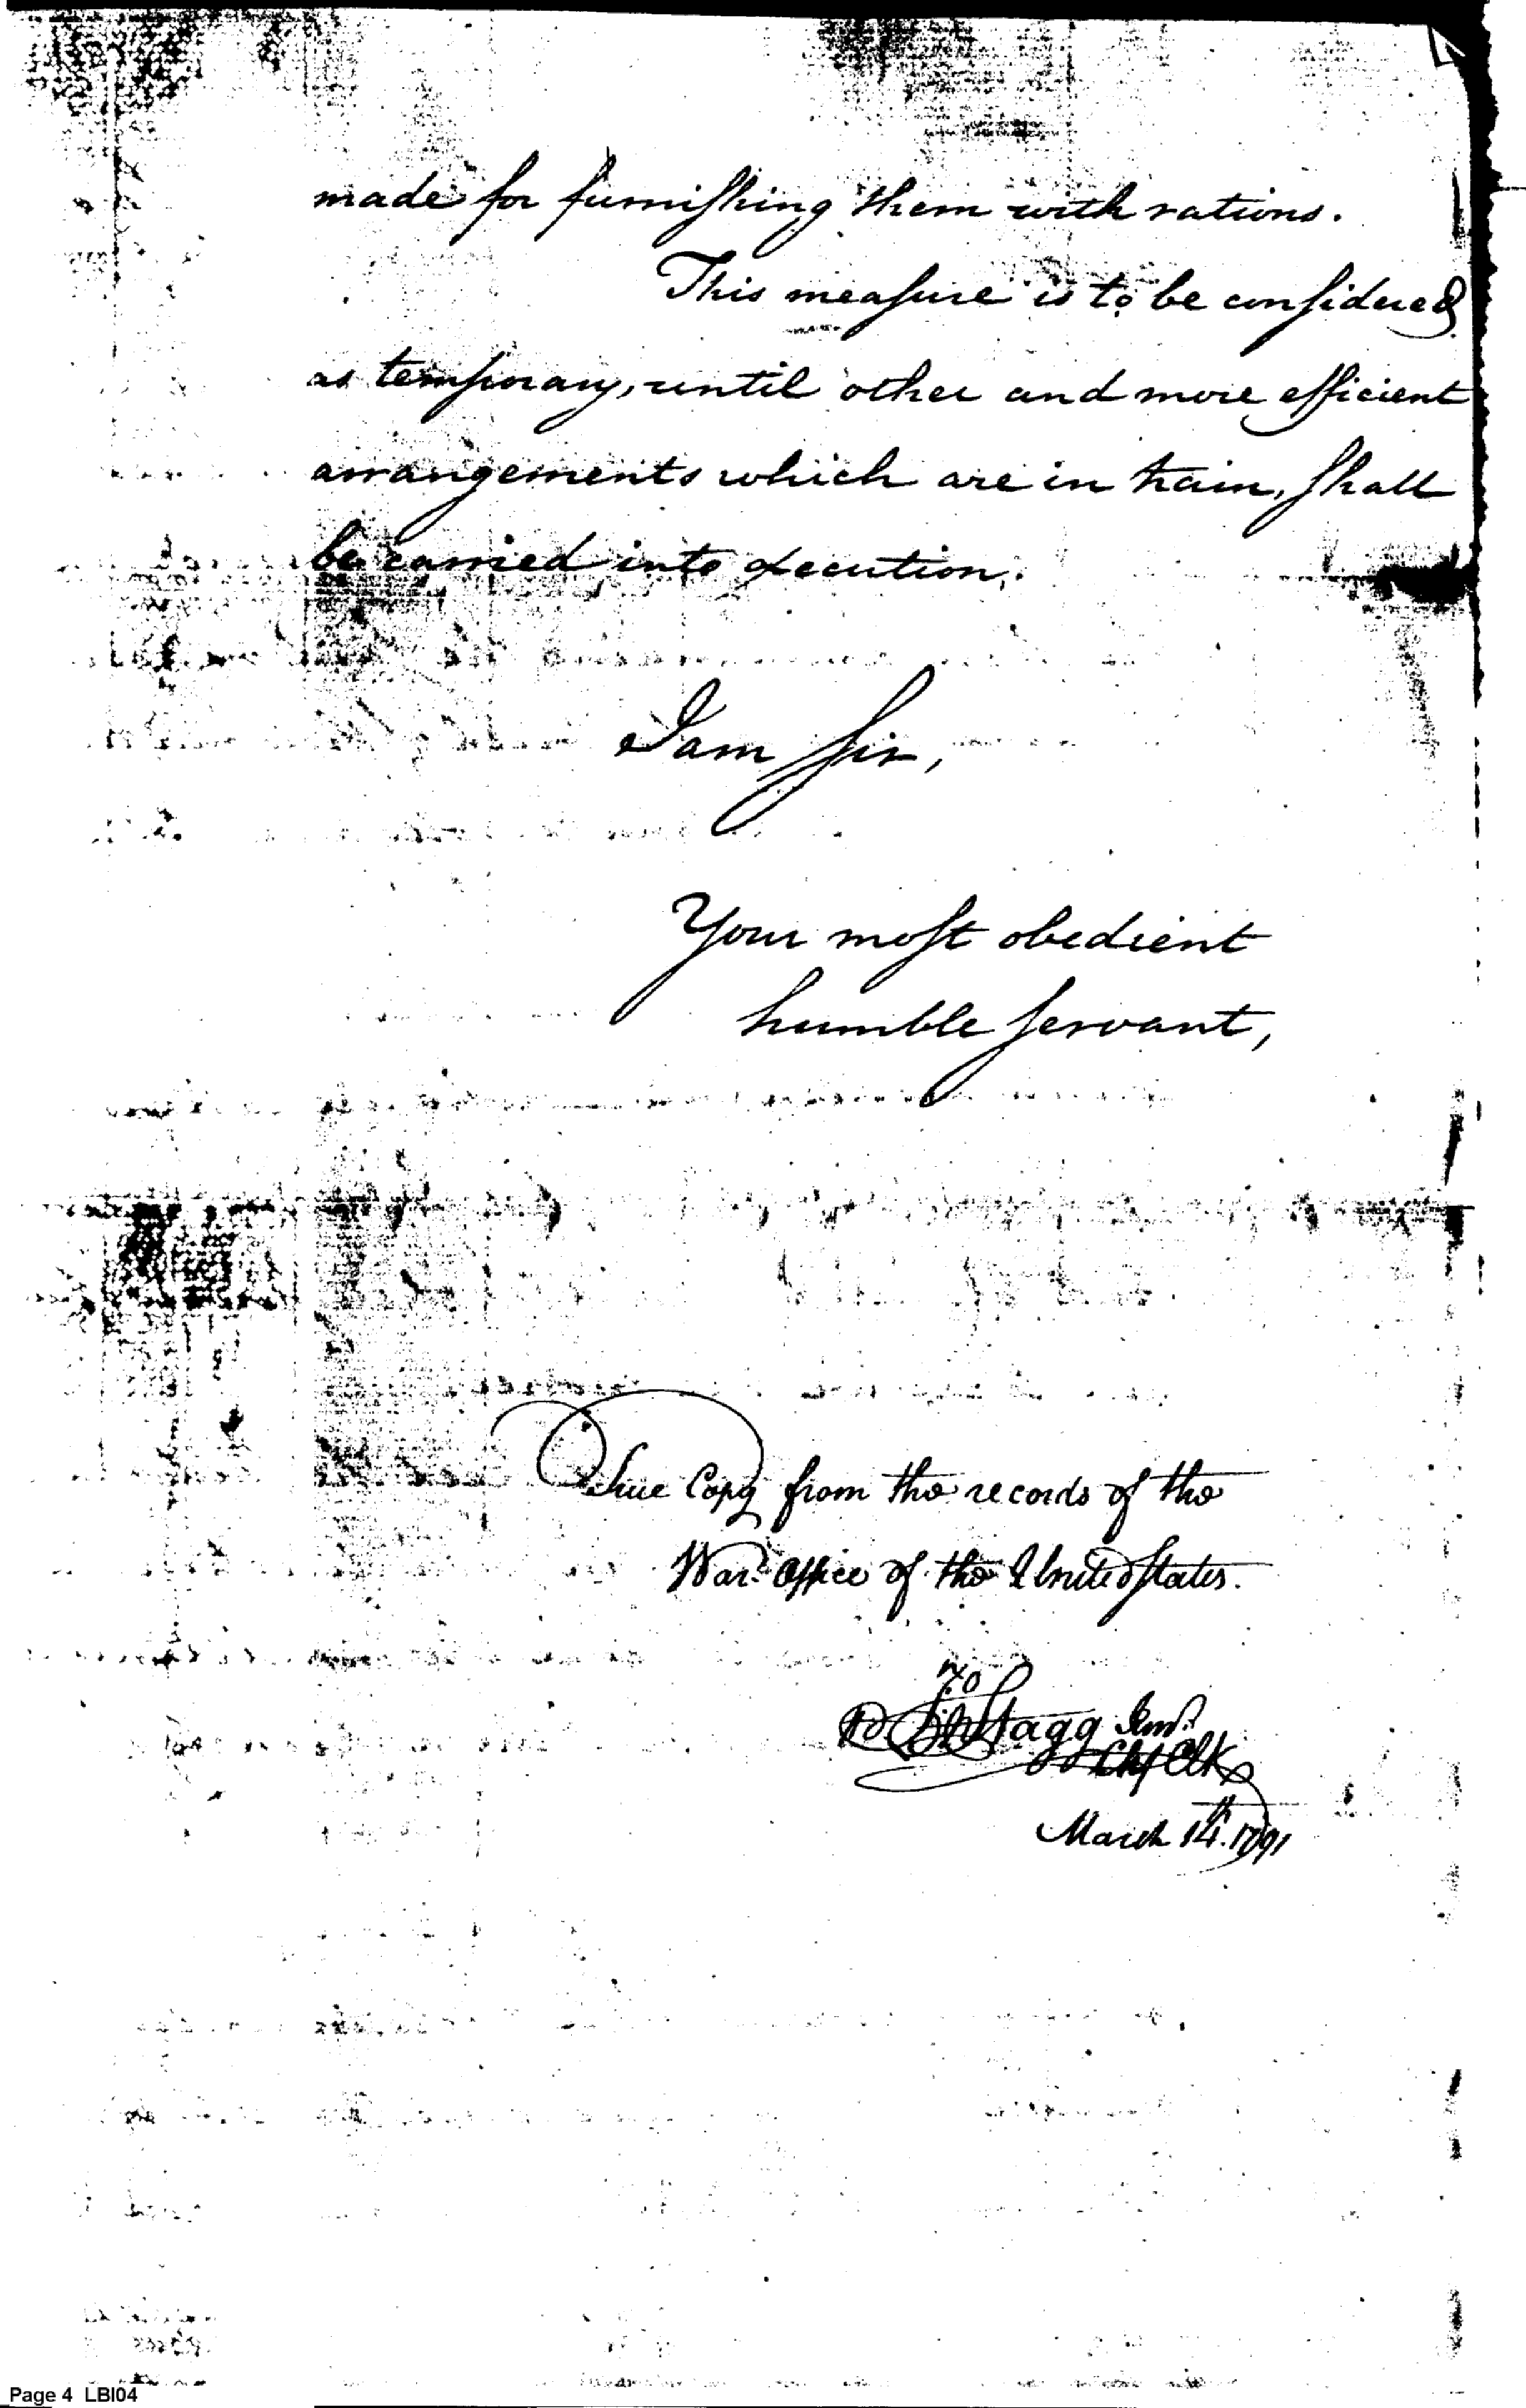 made for furnishing them with rations.
This measure is to be considered
as temporary, until other and more efficient
arrangements which are in train, shall
be carried into execution.
I am Sir,
Your most obedient
humble servant,
True Copy from the records of the
War Office of the United States.
Jno Stagg Junr.
Chf Clk
March 14th. 1791
Page 4 LBI04